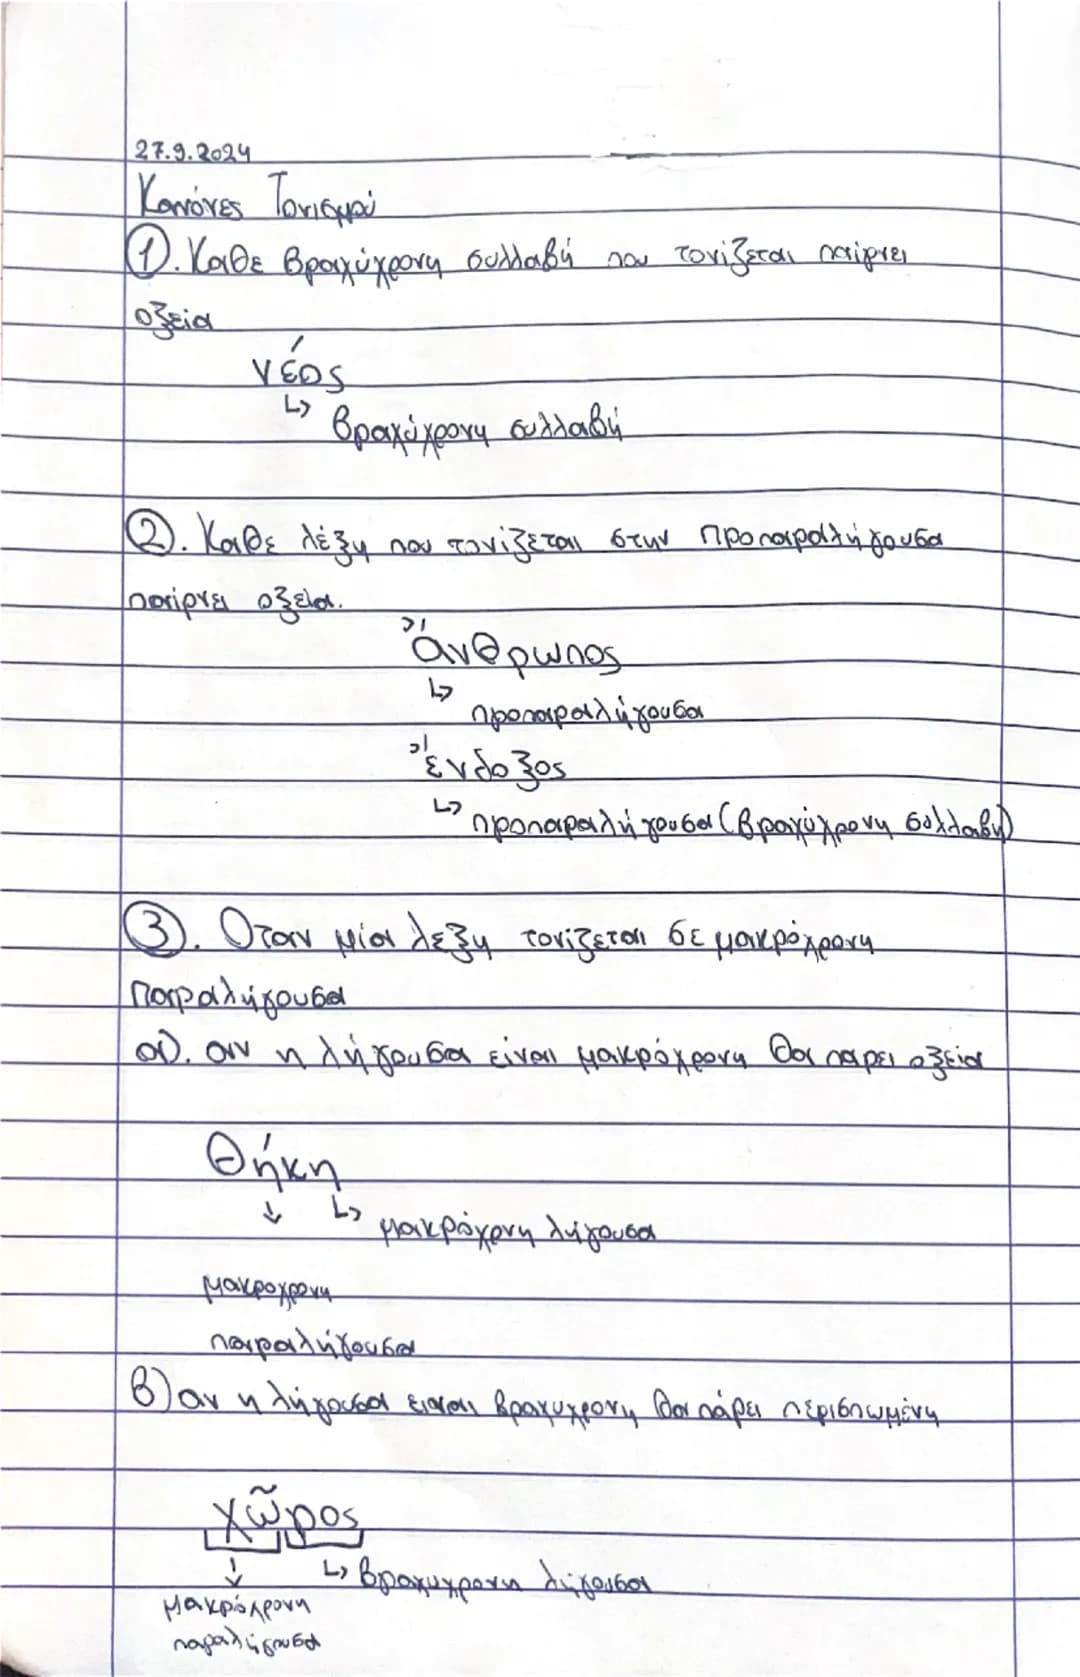 27.9.2024
Κανόνες Τονισμού
①. Καθε βραχύχρονη συλλαβή που τονίζεται παίρνει
οξεία
νέος
↳ βραχύχρονη συλλαβή
②. Καθε λέξη που τονίζεται στην προπαραλήγουσα
παίρνει οξεία.
ἄνθρωπος
↳ προπαραλήγουσα
ἔνδοξος
↳ προπαραλήγουσα (βραχύχρονη συλλαβή)
③. Οταν μία λεξη τονίζεται σε μακρόχρονη
παραλήγουσα
α). αν η λήγουσα είναι μακρόχρονη θα παρει οξεία
Θήκη
↓ ↳ μακρόχρονη λήγουσα
μακροχρονη
παραλήγουσα
β) αν η λήγουσα ειναι βραχυχρονη θα πάρει περισπωμένη
χῶρος
↓ ↳ βραχυχρονη λήγουσα
μακρόχρονη
παραλήγουσα